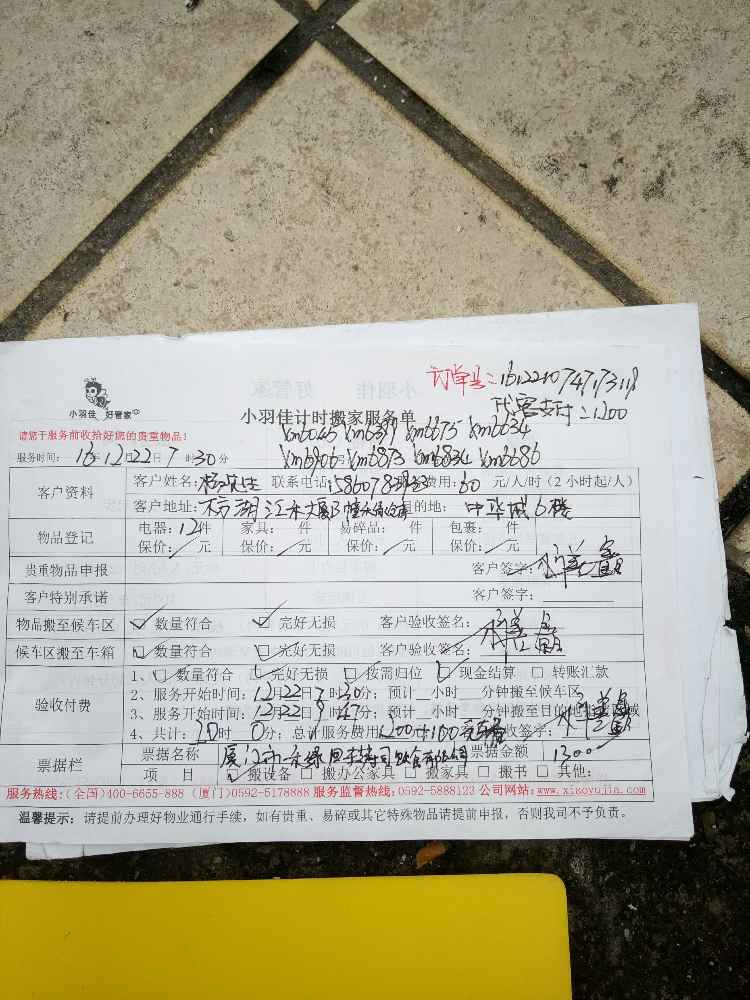 小羽佳 好管家
订单号:
代客支付:1200
小羽佳计时搬家服务单
请您于服务前收拾好您的贵重物品!
xm6045 xm6399 xm6675 xm6634
服务时间: 16年12月22日7时30分
xm6906 xm6873 xm6834 xm6686
客户资料
客户姓名: 杨先生 联系电话: 费用:60元/人/时(2小时起/人)
客户地址: 目的地: 中华城6楼
物品登记
电器:12件 家具: 件 易碎品: 件 包裹: 件
保价: 元 保价: 元 保价: 元 保价: 元
贵重物品申报 客户签字:
客户特别承诺 客户签字:
物品搬至候车区 数量符合 完好无损 客户验收签名:
候车区搬至车箱 数量符合 完好无损 客户验收签名:
验收付费
1、 数量符合 完好无损 按需归位 现金结算 转账汇款
2、服务开始时间:12月22日7时30分;预计 小时 分钟搬至候车区
3、服务开始时间:12月22日9时47分;预计 小时 分钟搬至目的地指定区域
4、共计:20时0分;总计服务费用:1200元+100 签字:
票据栏
票据名称 票据金额 1300
项 目 搬设备 搬办公家具 搬家具 搬书 其他:
服务热线:(全国)400-6655-888 (厦门)0592-5178888 服务监督热线:0592-5888123 公司网站:www.xiaoyujia.com
温馨提示: 请提前办理好物业通行手续,如有贵重、易碎或其它特殊物品请提前申报,否则我司不予负责。